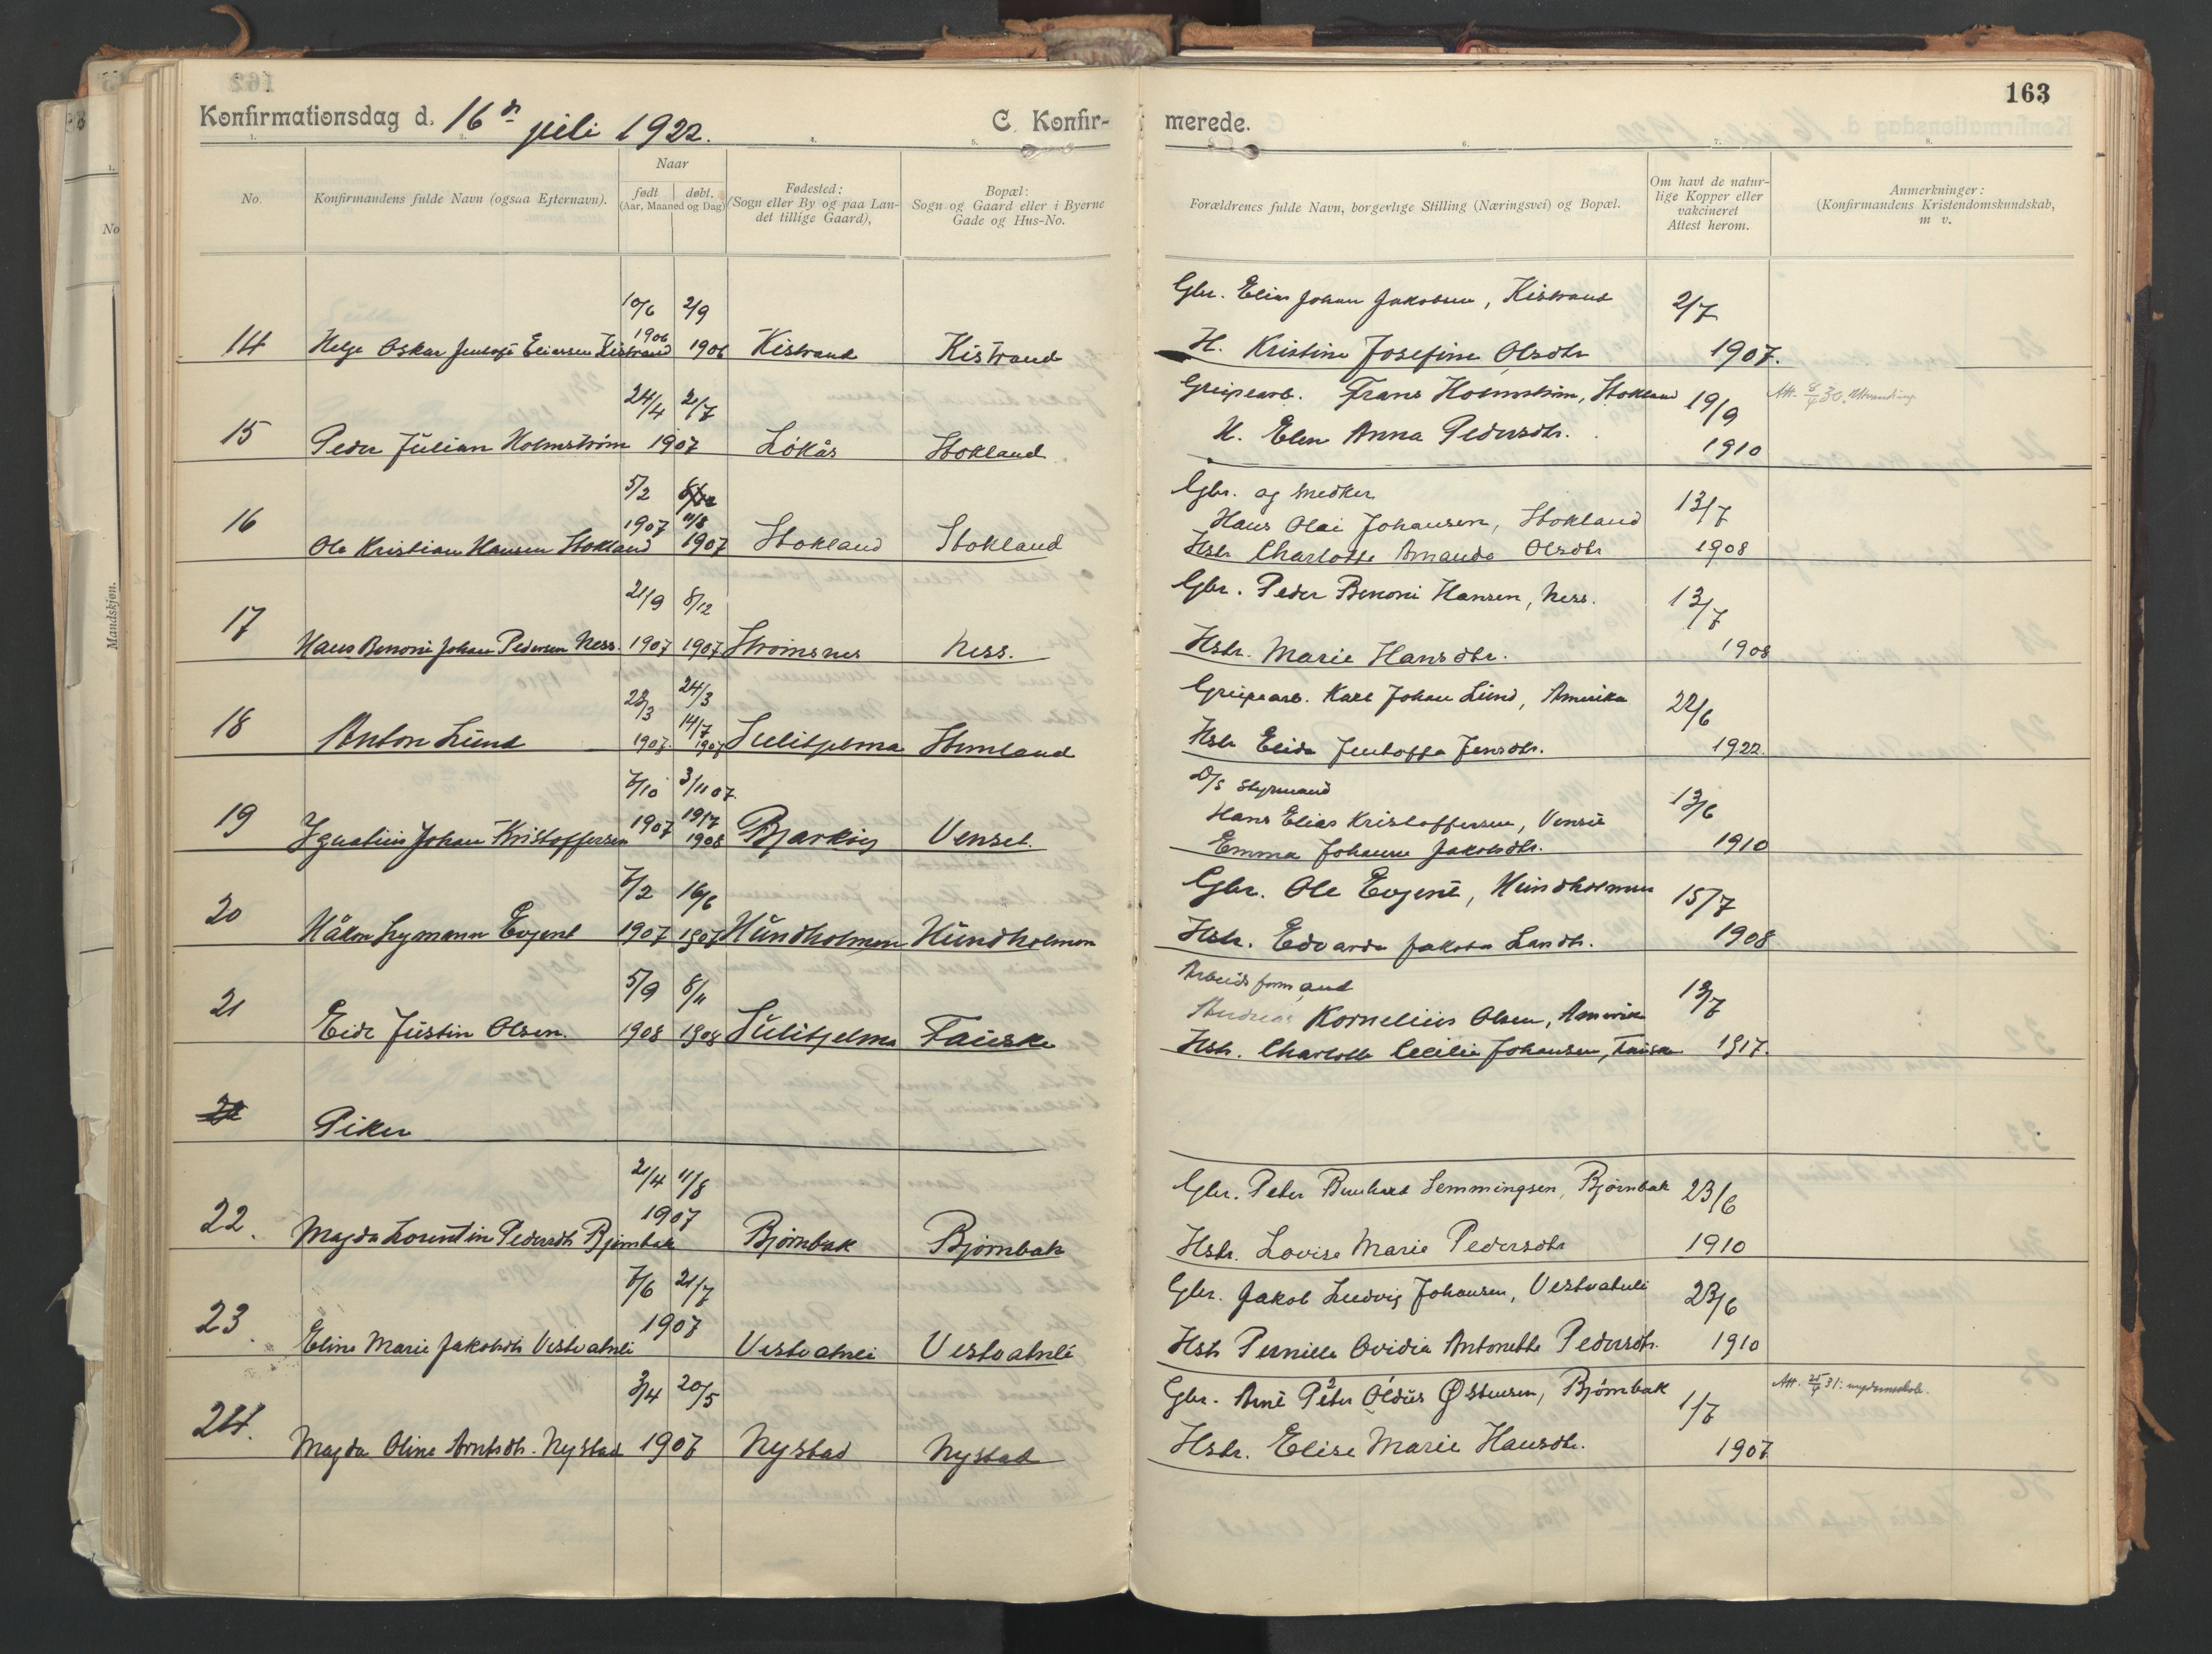 163
Konfirmationsdag d. 16de juli 1922. C. Konfirmerede.
1. 2. 4. 5. 6. 7. 8.
No. Konfirmandens fulde Navn (ogsaa Efternavn). Naar født døbt. (Aar, Maaned og Dag) Fødested: (Sogn eller By og paa Landet tillige Gaard), Bopæl: Sogn og Gaard eller i Byerne Gade og Hus-No. Forældrenes fulde Navn, borgerlige Stilling (Næringsvei) og Bopæl. Om havt de naturlige Kopper eller vakcineret Attest herom. Anmerkninger: (Konfirmandens Kristendomskundskab, m v.
Mandskjøn.
10/6 2/9 Gbr. Elias Johan Jakobsen, Kistrand 2/7
14 Helge Oskar Jentoft Eliassen Kistrand 1906 1906 Kistrand Kistrand H. Kristine Josefine Olsdtr 1907.
24/4 21/7 Grubearb. Frans Holmstrøm, Stokland 19/9 Att. 8/4 30. Utvandring
15 Peder Julian Holmstrøm 1907 Løkås Stokland H. Elen Anna Pedersdtr. 1910
5/2 Gbr. og snedker 13/7
16 1907 11/8 Hans Olai Johansen, Stokland
Ole Kristian Hansen Stokland 1907 Stokland Stokland Hstr Charlotte Amanda Olsdtr 1908
21/9 8/12 Gbr. Peder Benoni Hansen, Ness. 13/7
17 Hans Benoni Johan Pedersen Ness. 1907 1907 Strømsnes Ness. Hstr. Marie Hansdtr. 1908
23/3 24/3 Grubearb. Karl Johan Lund, Amerika 22/6
18 Anton Lund 1907. 14/7 1907 Sulitjelma Stemland Hstr Elida Jentoffa Jensdtr. 1922.
7/10 3/11 07. D/S Styrmand 13/6
19 Ignatius Johan Kristoffersen 1907 19/7 1908 Bjarkøy Venset. Hans Elias Kristoffersen, Venset
Emma Johanne Jakobsdtr. 1910
7/2 16/6 Gbr. Ole Evjent, Hundholmen 15/7
20 Håkon Lymann Evjent 1907 1907 Hundholmen Hundholmen Hstr. Edvarda Jakoba Landtr. 1908
5/9 8/11 Arbeidsformand 13/7
21 Eide Justin Olsen. 1908 1908 Sulitjelma Fauske Andreas Kornelius Olsen, Amerika
Hstr. Charlotte Cecilie Johansen, Fauske 1917.
Piker
21/4 11/8 Gbr. Peter Bernhard Lemmingsen, Bjørnbak 23/6
22. Magda Lorentin Pedersdtr Bjørnbak 1907 Bjørnbak Bjørnbak Hstr. Lovise Marie Pedersdtr 1910
7/6 21/7 Gbr. Jakob Ludvig Johansen, Vestvatnli 23/6
23. Eline Marie Jakobsdtr Vestvatnli 1907 Vestvatnli Vestvatnli Hstr Pernille Ovidia Antonette Pedersdtr. 1910
3/4 20/5 Gbr. Arnt Peter Oldus Østensen, Bjørnbak 1/7 Att. 25/4 31:
24. Magda Oline Arntsdtr. Nystad 1907 Nystad Nystad Hstr. Elise Marie Hansdtr. 1907